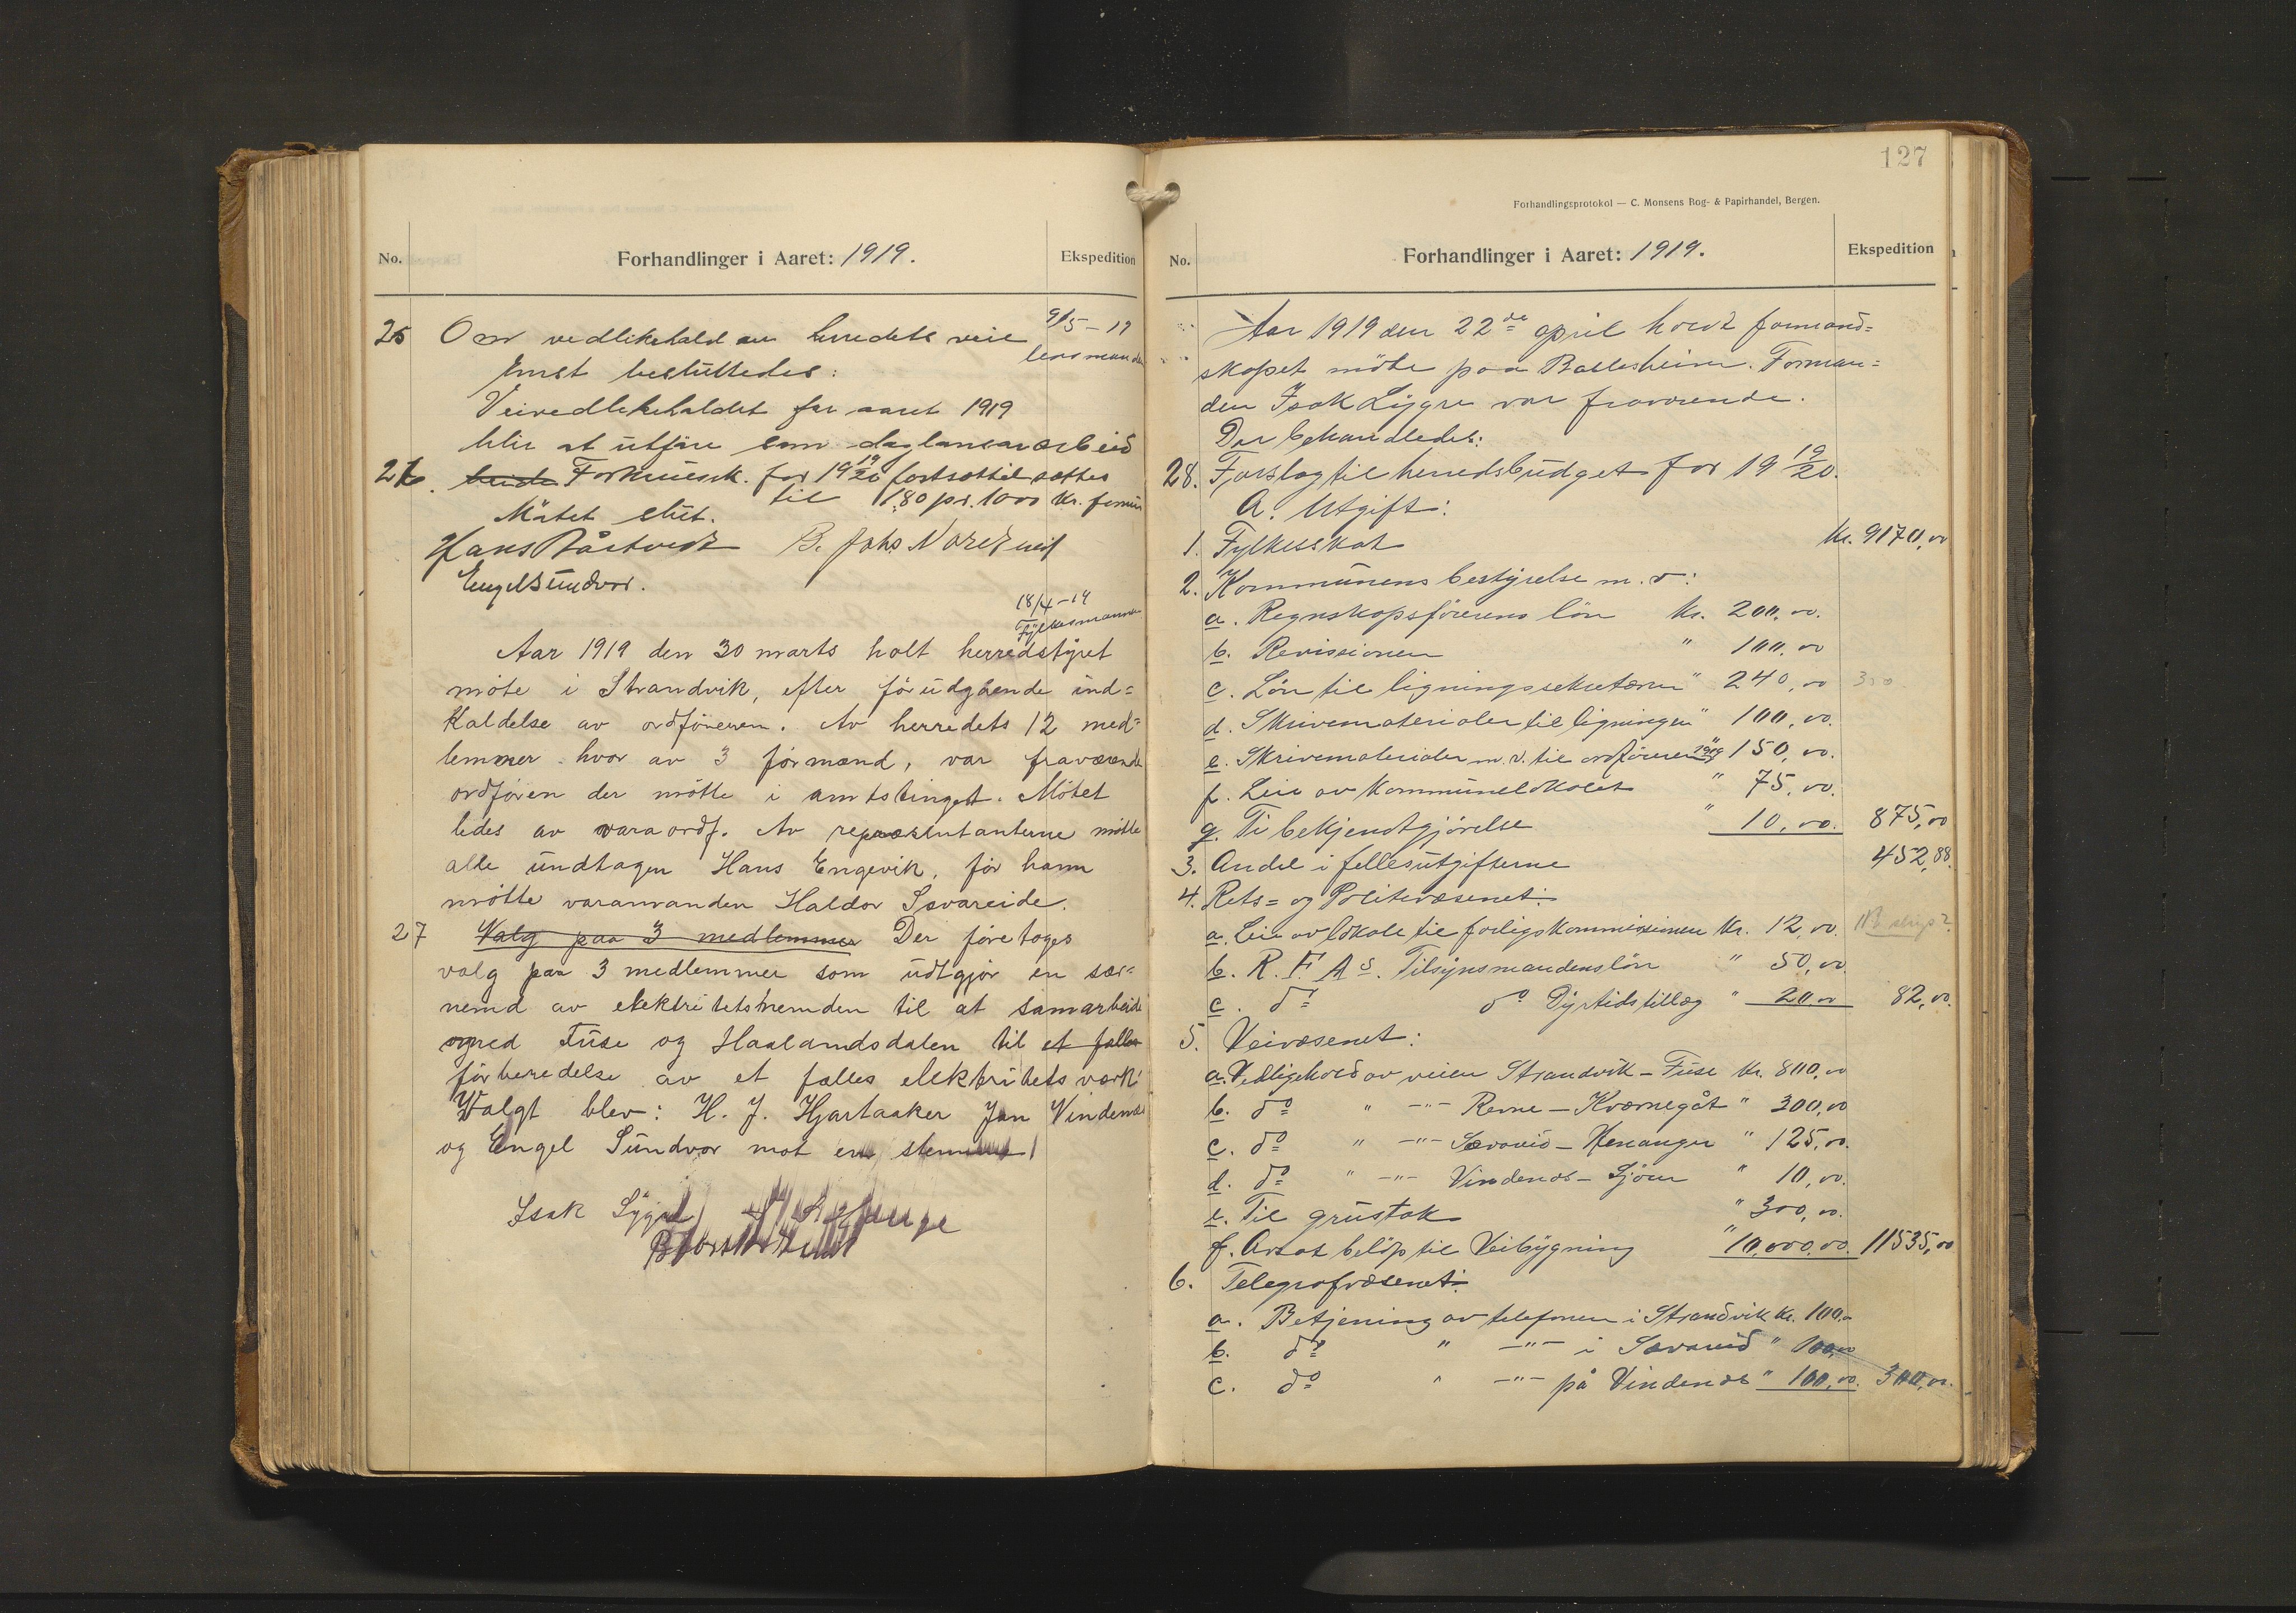 No.
Forhandlinger i Aaret: 1919.
Ekspedition
25 Om vedlikehald av herredets veie
9/5-19
lensmanden
Enst besluttedes:
Veivedlikehaldet for aaret 1919
blir at utføre som daglønsarbeid
26. Formuessk. for 19 19/20 fortsattil sattes
til 1,80 pr. 1000 kr. formue
Mötet slut.
Hans Båtvedt B. Johs Nordtveit
Engel Sundvor.
18/4-19
Fylkesmannen
Aar 1919 den 30 marts holt herredstyret
möte i Strandvik, efter forudgaende ind=
kaldelse av ordföreren. Av herredets 12 med=
lemmer hvor av 3 formænd, var fraværende
ordfören der mötte i amtstinget. Mötet
ledes av varaordf. Av repræsentanterne mötte
alle undtagen Hans Engevik, för ham
mötte varamanden Haldor Sævareide.
27 Valg paa 3 medlemmer Der företoges
valg paa 3 medlemmer som udtgjör en sær=
nemd av elektritetsnemden til at samarbeide
med Fuse og Haalandsdalen til et fælles
forberedelse av et fælles elektritets værk.
Valgt blev: H. J. Hjartaaker Jan Vindenes
og Engel Sundvor mot en stemme
Isak Lygre
127
Forhandlingsprotokol — C. Monsens Bog- & Papirhandel, Bergen.
No.
Forhandlinger i Aaret: 1919.
Ekspedition
Aar 1919 den 22de april hordt formand=
skapet möte paa Ballesheim. Forman=
den Isak Lygre var fraværende.
Der behandledes:
28. Forslag til herredsbudget for 19 19/20.
A. Utgift:
1. Fylkesskat kr. 9170,00
2. Kommunens bestyrelse m. v:
a. Regnskapsförerens lön kr. 200,00.
b. Revisionen " 100,00
c. Lön til ligningssekretæren " 240,00 300
d. Skrivematerialer til ligningen " 100,00.
e. Skrivematerialer m.v. til ordföreren 1919 " 150,00.
f. Leie av kommunelokalet " 75,00.
g. Ti bekjendtgjörelse " 10,00. 875,00
3. Andel i fellesutgifterne 452,88.
4. Rets= og Politivæsenet:
a. Leie av lokale til forligskommissionen kr. 12,00.
b. R. F. A s. Tilsynsmandens lön " 50,00.
c. do do Dyrtidstillæg " 20,00 82,00.
5. Veivæsenet:
a. Vedligehold av veien Strandvik - Fuse kr. 800,00
b. do " -"- Revne - Kvernegåt " 300,00
c. do " -"- Sævareid - Henanger " 125,00.
d. do " -"- Vindenes - Sjöen " 10,00.
e. Til grustak " 300,00.
f. Avsat belöp til Veibygning " 10,000,00. 11535,00
6. Telegrafvæsenet:
a. Betjening av telefonen i Strandvik kr. 100,00
b. do " -"- i Sævareid " 100,00
c. do " -"- på Vindenes " 100,00. 300,00.